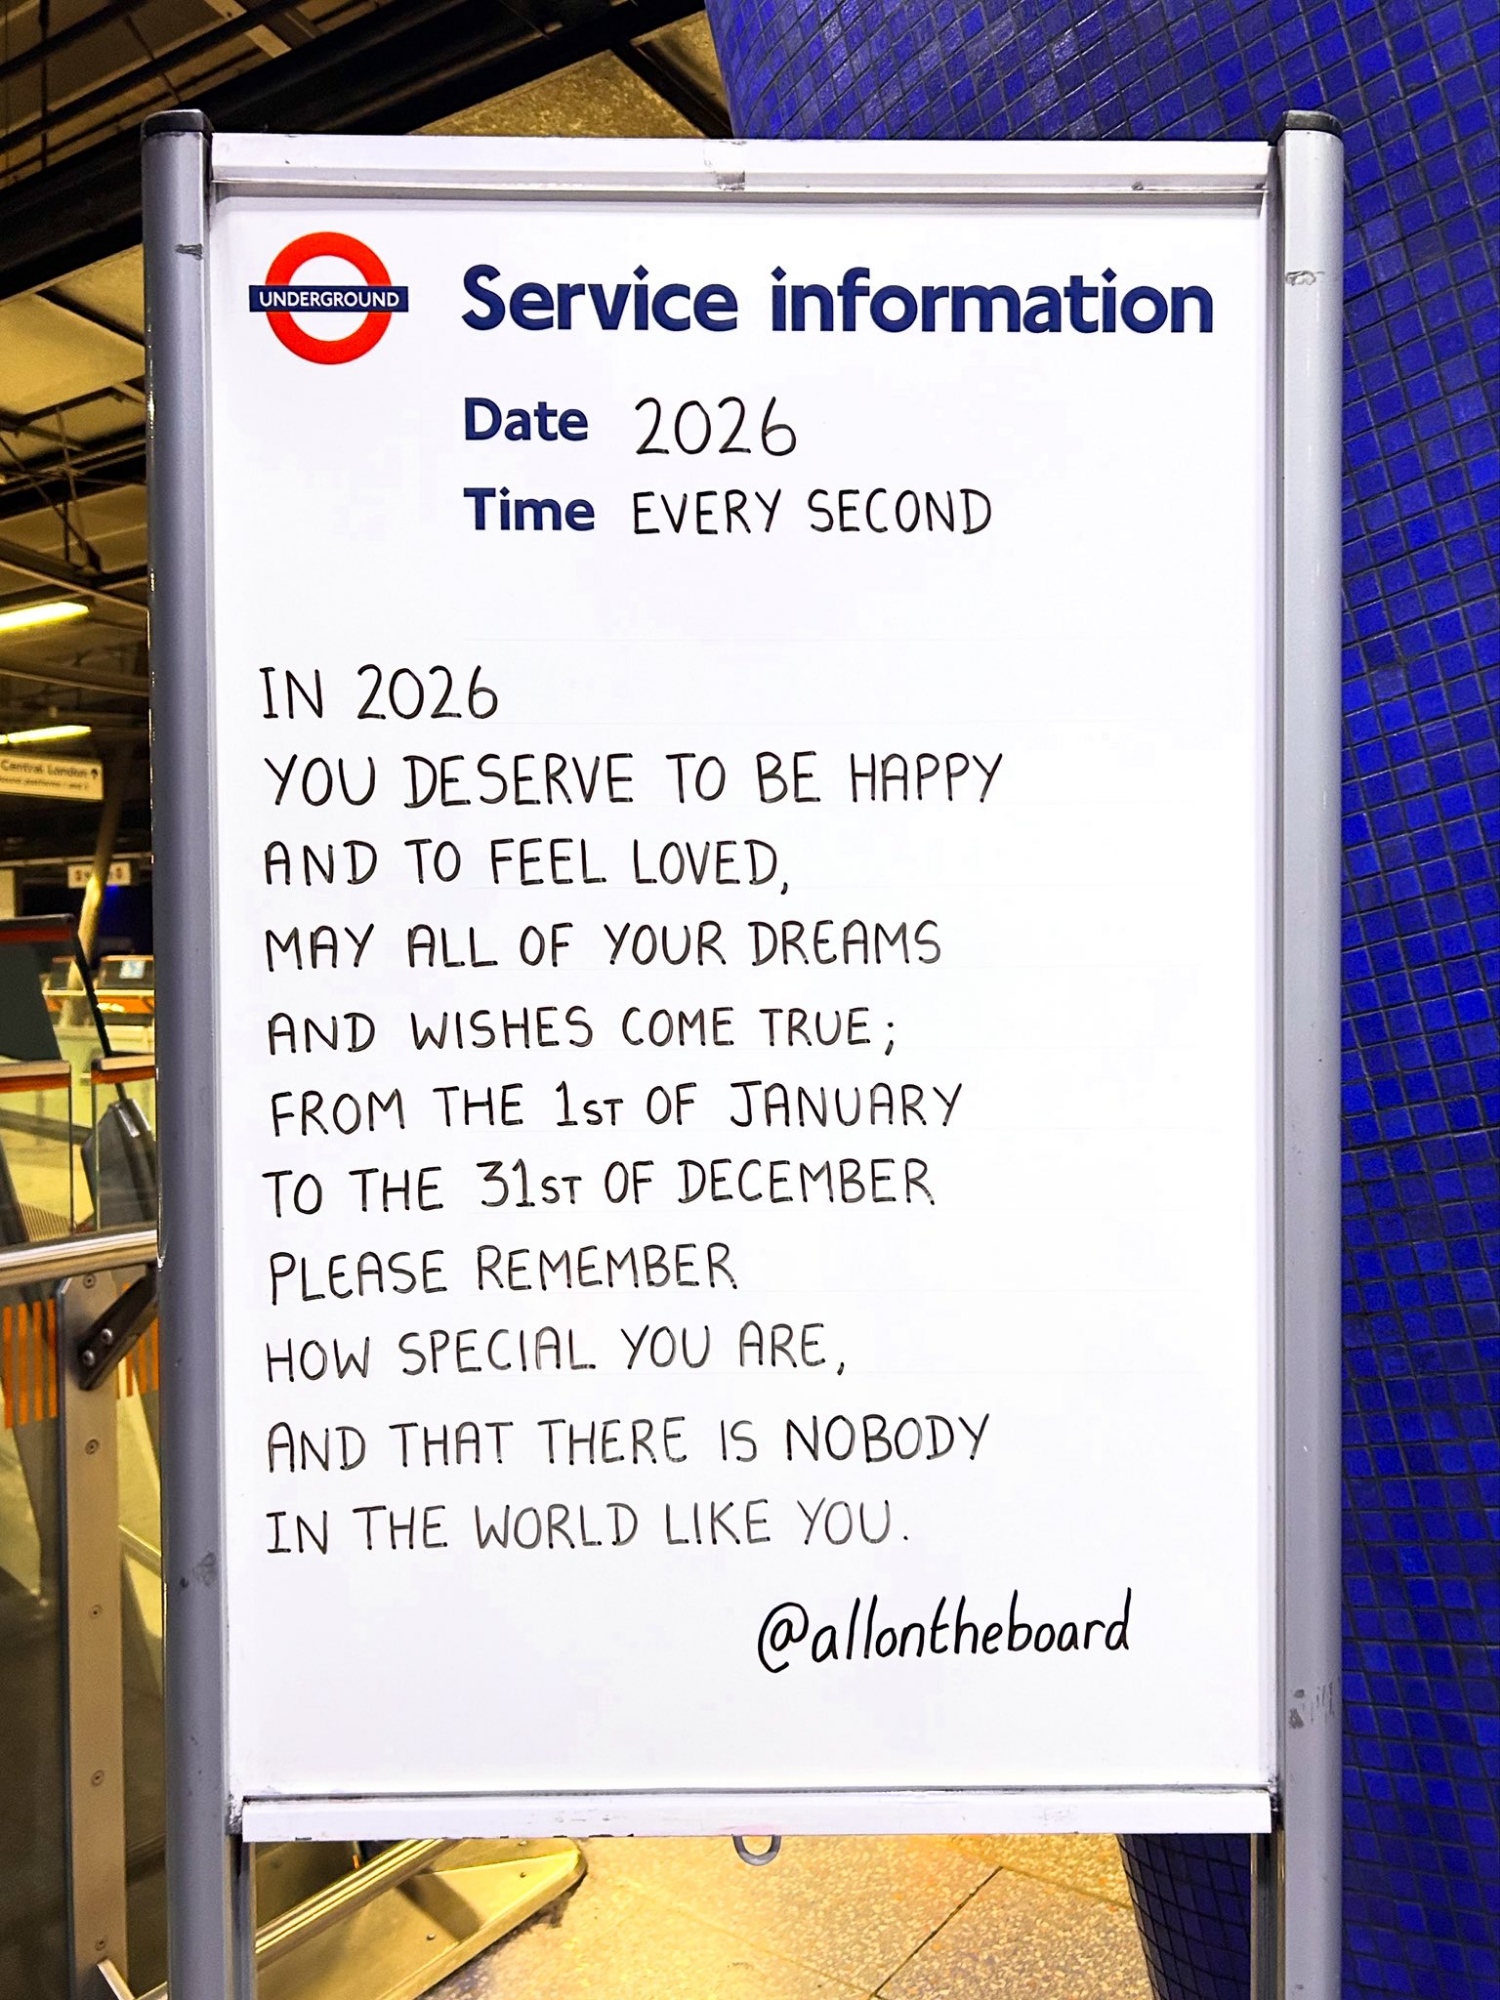 UNDERGROUND
Service information
Date 2026
Time EVERY SECOND
IN 2026
YOU DESERVE TO BE HAPPY
AND TO FEEL LOVED,
MAY ALL OF YOUR DREAMS
AND WISHES COME TRUE;
FROM THE 1ST OF JANUARY
TO THE 31ST OF DECEMBER
PLEASE REMEMBER
HOW SPECIAL YOU ARE,
AND THAT THERE IS NOBODY
IN THE WORLD LIKE YOU.
@allontheboard
Central London